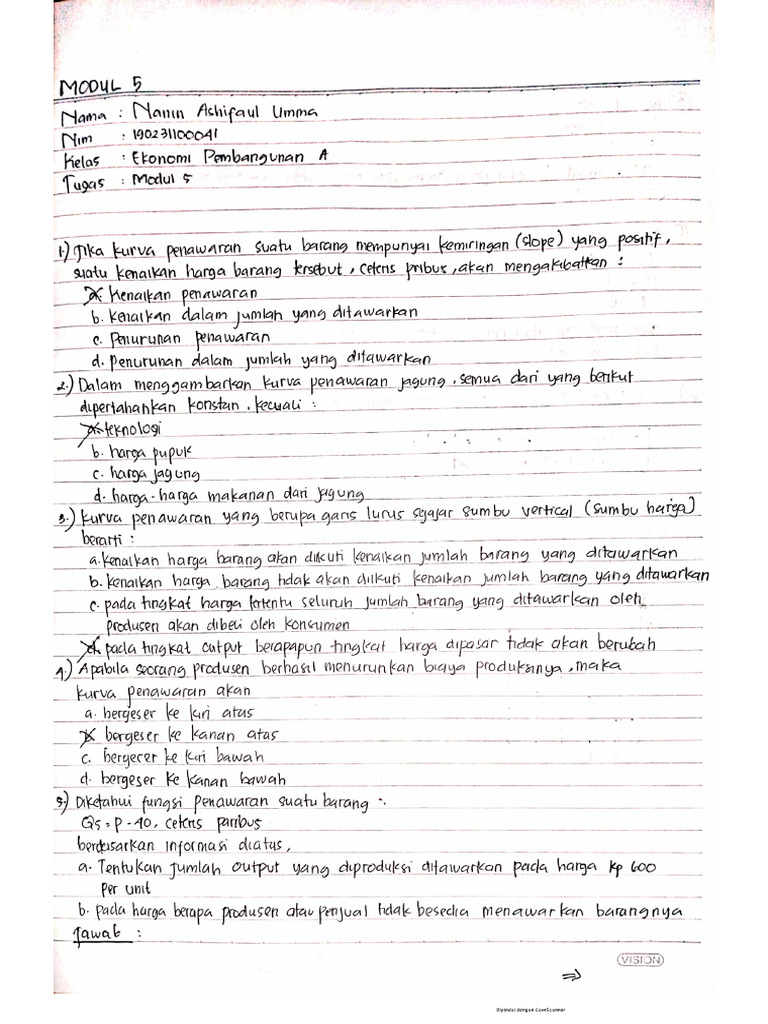 MODUL 5
Nama : Nanin Ashifaul Umma
Nim : 190231100041
Kelas : Ekonomi Pembangunan A
Tugas : Modul 5
1.) Jika kurva penawaran suatu barang mempunyai kemiringan (slope) yang positif,
suatu kenaikan harga barang tersebut, ceteris pribus, akan mengakibatkan :
a. Kenaikan penawaran
b. kenaikan dalam jumlah yang ditawarkan
c. Penurunan penawaran
d. penurunan dalam jumlah yang ditawarkan
2.) Dalam menggambarkan kurva penawaran jagung, semua dari yang berikut
dipertahankan konstan, kecuali :
a. teknologi
b. harga pupuk
c. harga jagung
d. harga-harga makanan dari jagung
3.) Kurva penawaran yang berupa garis lurus sejajar sumbu vertical (sumbu harga)
berarti :
a. kenaikan harga barang akan diikuti kenaikan jumlah barang yang ditawarkan
b. kenaikan harga barang tidak akan diikuti kenaikan jumlah barang yang ditawarkan
c. pada tingkat harga tertentu seluruh jumlah barang yang ditawarkan oleh
produsen akan dibeli oleh konsumen
d. pada tingkat output berapapun tingkat harga dipasar tidak akan berubah
4.) Apabila seorang produsen berhasil menurunkan biaya produksinya, maka
kurva penawaran akan
a. bergeser ke kiri atas
b. bergeser ke kanan atas
c. bergeser ke kiri bawah
d. bergeser ke kanan bawah
5.) Diketahui fungsi penawaran suatu barang :
Qs = P - 40, ceteris paribus
berdasarkan informasi diatas,
a. Tentukan jumlah output yang diproduksi ditawarkan pada harga Rp 600
per unit
b. pada harga berapa produsen atau penjual tidak besedia menawarkan barangnya
Jawab :
⇒
VISION
Dipindai dengan CamScanner